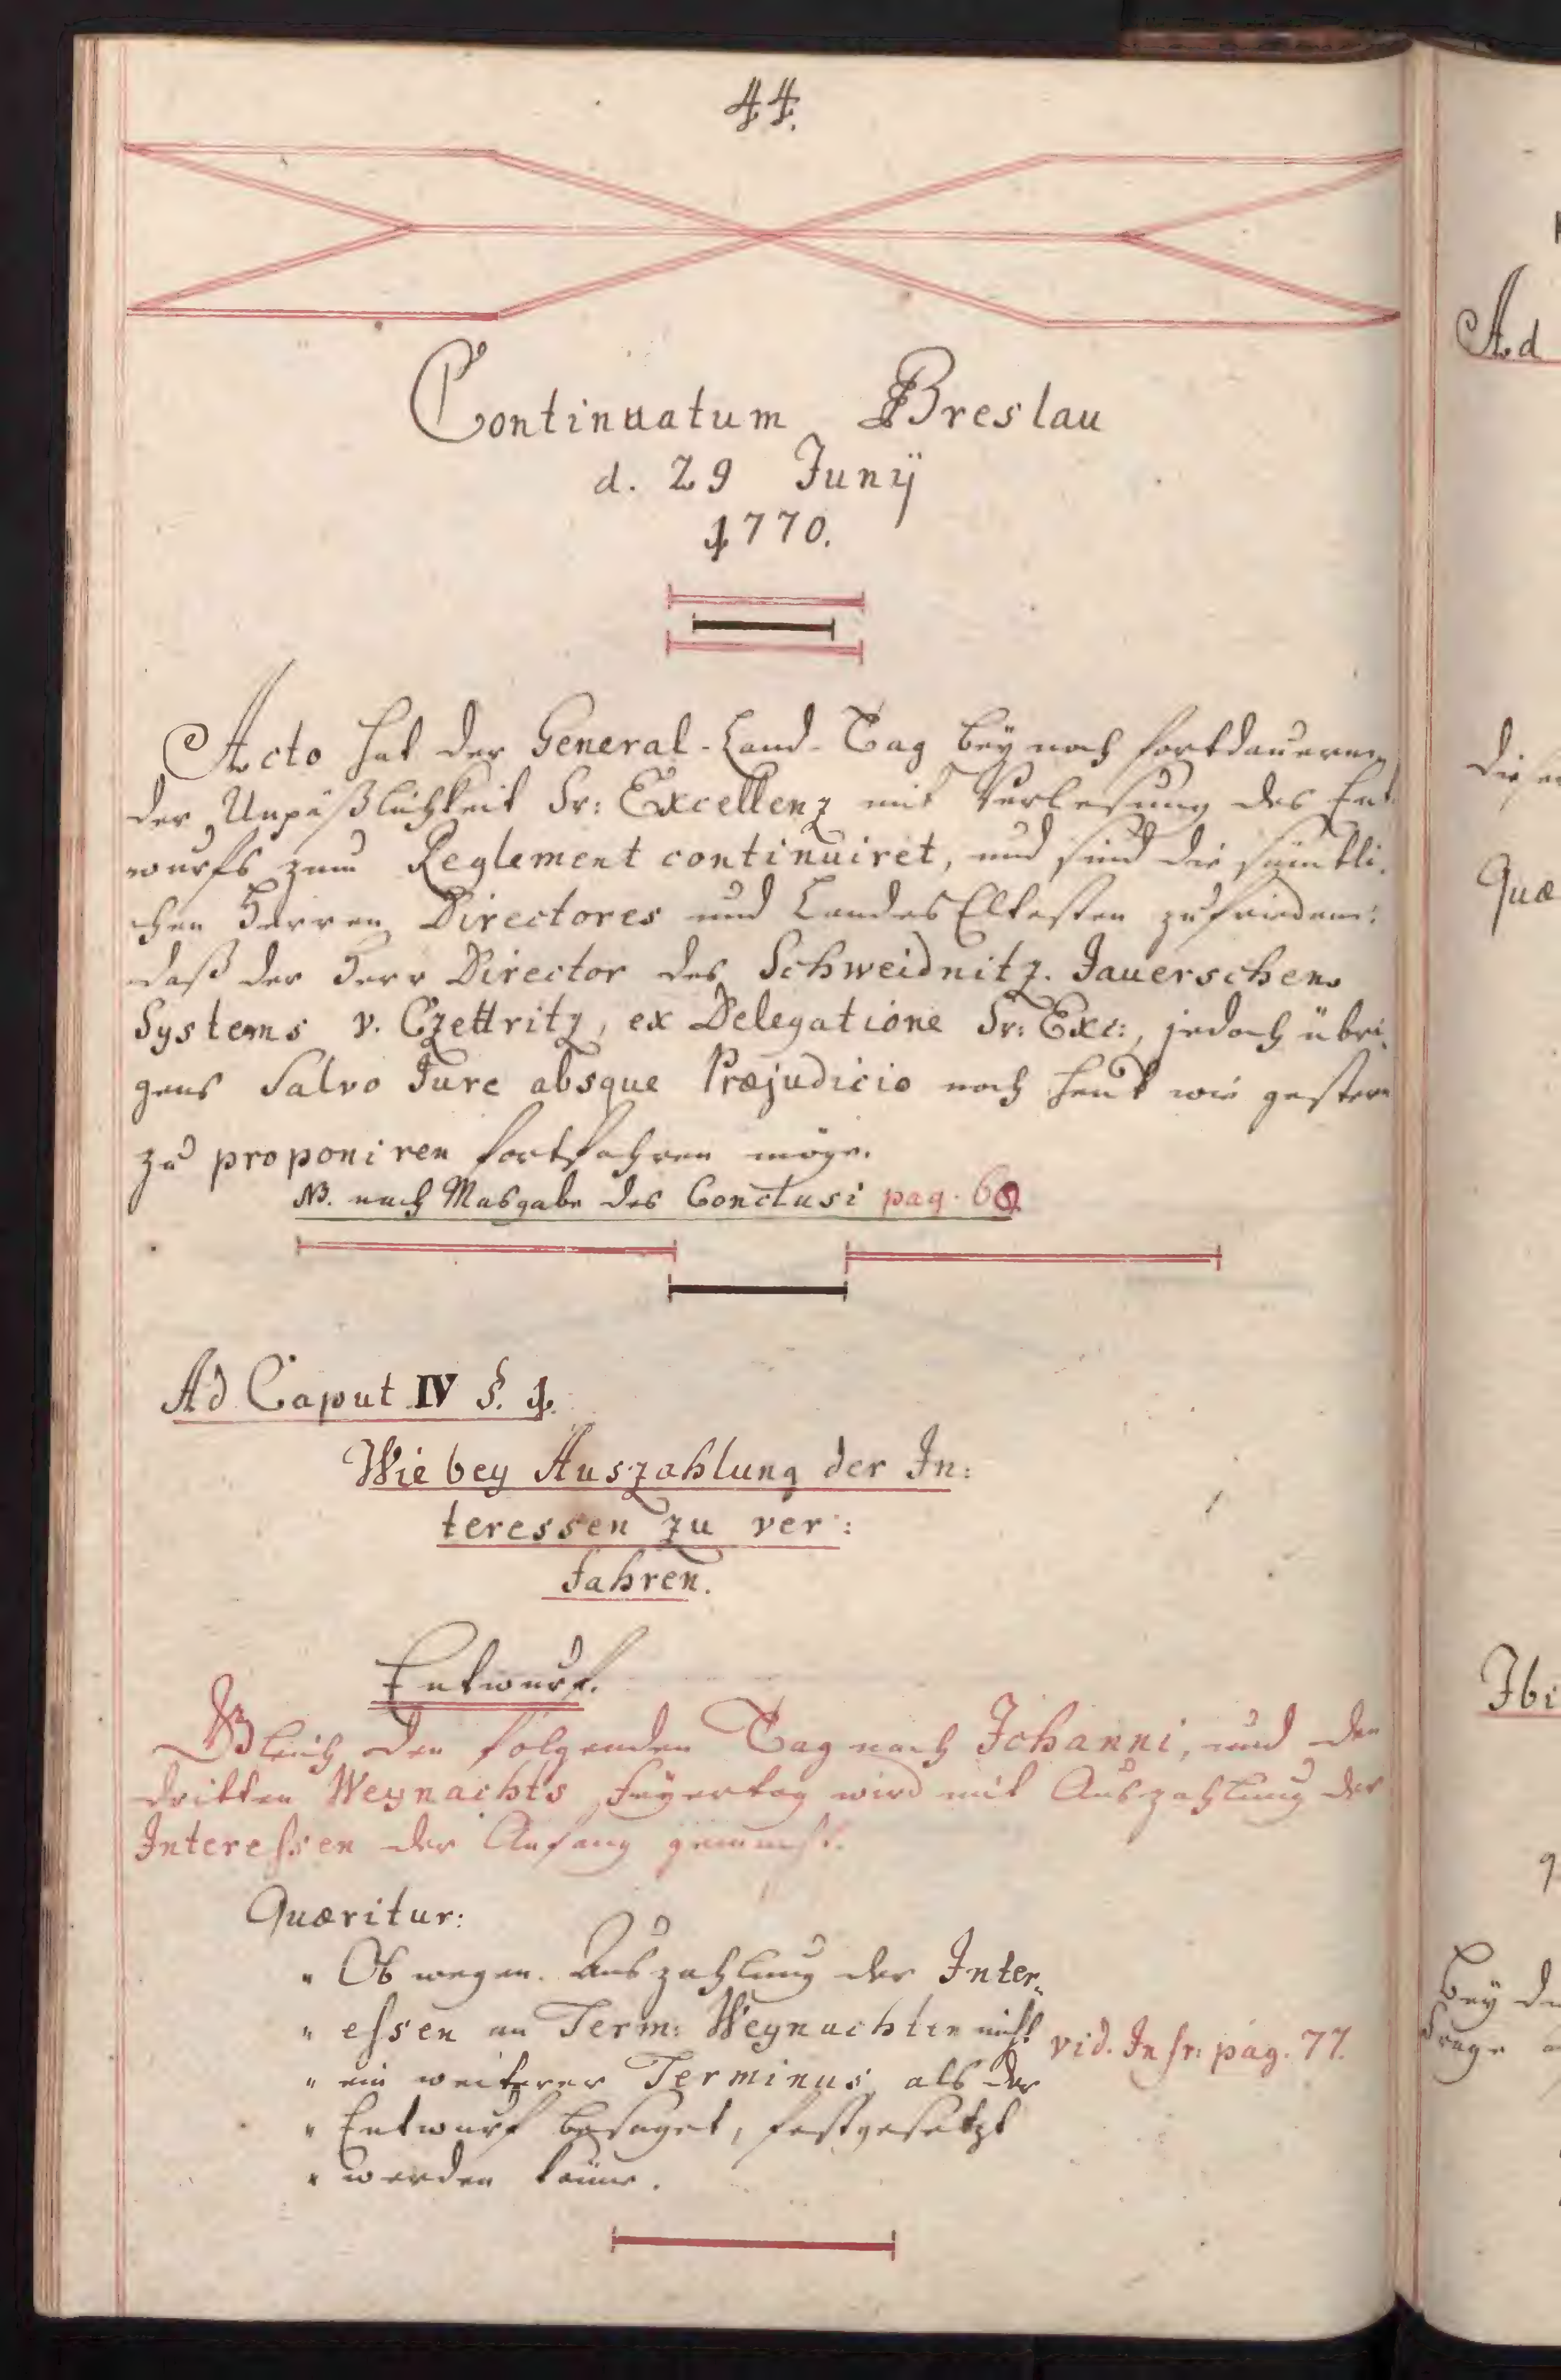 44.
Continuatum Breslau
d. 29 Junÿ
1770.
Acto hat der General-Land-Tag beÿ noch fortdauern
der Unpäßlichkeit Sr: Excellenz mit Verlesung des Ent
wurfs zum Reglement continuiret, und sind die sämtli.
chen Herren Directores und Landes Eltesten zufrieden:
daß der Herr Director des Schweidnitz. Jauerschen
Systems v. Czettritz, ex Delegatione Sr: Exc:, jedoch übri.
gens Salvo Jure absque Præjudicio noch heut wie gestern
zu proponiren fortfahren möge.
NB. nach Masgabe des Conclusi pag. 60
Ad Caput IV §. 1.
Wie bey Auszahlung der In:
teressen zu ver:
fahren.
Entwurf.
Gleich den folgenden Tag nach Johanni, und den
dritten Weynachts Feÿertag wird mit Auszahlung der
Interessen der Anfang gemacht.
Quæritur:
" Ob wegen Auszahlung der Inter„
" essen an Term: Weynachten nicht
vid. Infr: pag. 77.
" ein weiterer Terminus, als der
" Entwurf besaget, festgesetzt
" werden könne.
Ad
Quæ
Ibi
beÿ